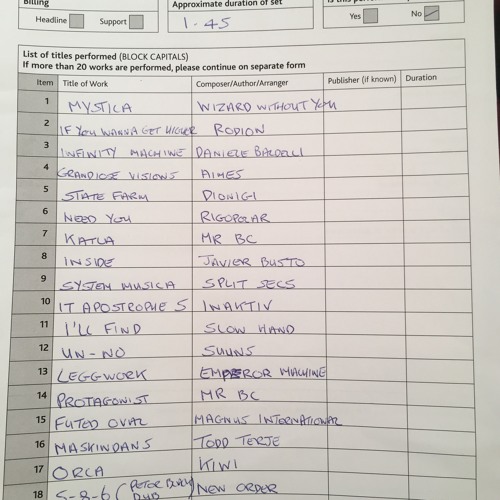 Billing
Approximate duration of set
Headline Support
1-45
Yes No
List of titles performed (BLOCK CAPITALS)
If more than 20 works are performed, please continue on separate form
Item Title of Work Composer/Author/Arranger Publisher (if known) Duration
1 MYSTICA WIZARD WITHOUT YOU
2 IF YOU WANNA GET HIGHER RODION
3 INFINITY MACHINE DANIELE BALDELLI
4 GRANDIOSE VISIONS AIMES
5 STATE FARM DIONIGI
6 NEED YOU RIGOPOLAR
7 KATLA MR BC
8 INSIDE JAVIER BUSTO
9 SYSTEM MUSICA SPLIT SECS
10 IT APOSTROPHE S INAKTIV
11 I'LL FIND SLOW HAND
12 UN-NO SUUNS
13 LEGGWORK EMPEROR MACHINE
14 PROTAGONIST MR BC
15 FUTED OVAL MAGNUS INTERNATIONAL
16 MASKINDANS TODD TERJE
17 ORCA KIWI
18 5-8-6 (PETER DUB) NEW ORDER